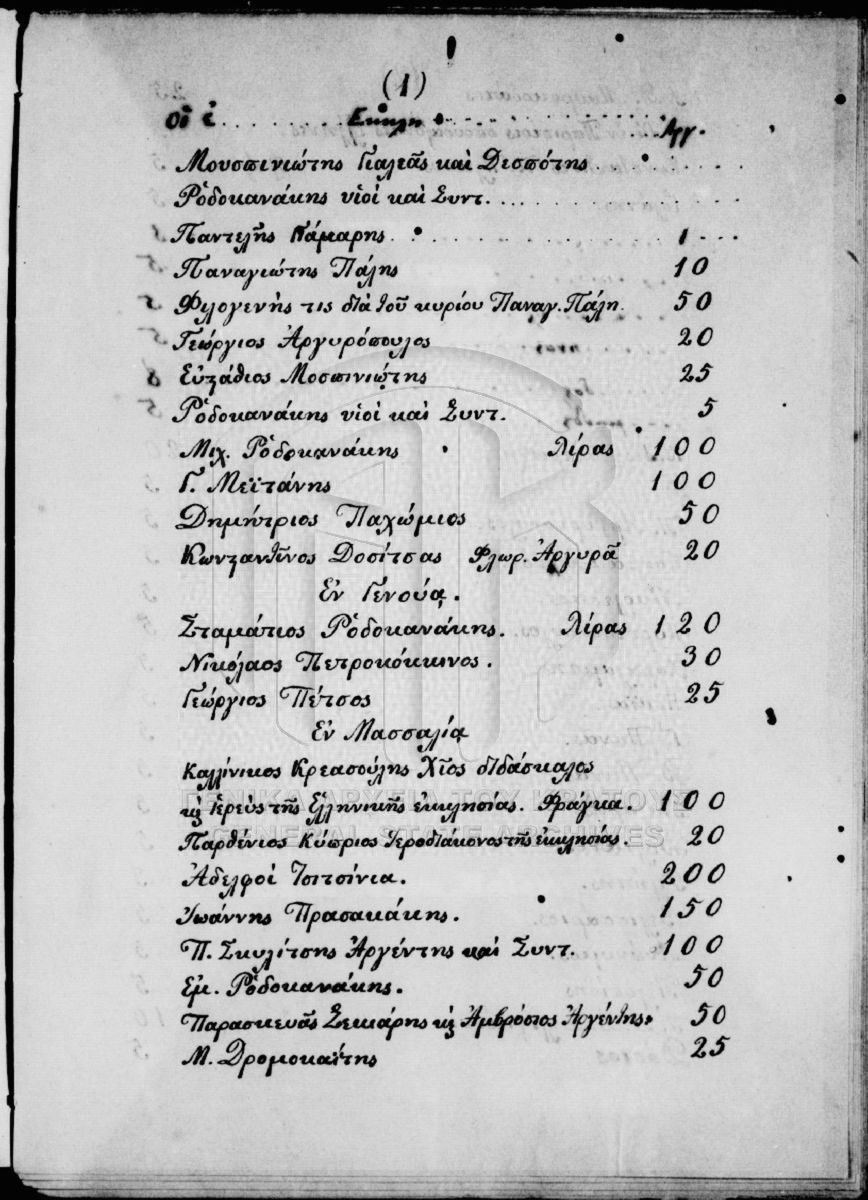 (1)
Οἱ ἐ............Εκκλη............Αργ.
Μουσπινιώτης Γιαλεᾶς καὶ Δεσπότης.............
Ῥοδοκανάκης υἱοὶ καὶ Συντ..............
Παντελῆς Κάμαρης............ 1 ...
Παναγιώτης Πάλης 10
Φιλογενής τις διὰ τοῦ κυρίου Παναγ. Πάλη. 50
Γεώργιος Ἀργυρόπουλος 20
Εὐστάθιος Μοσπινιώτης 25
Ῥοδοκανάκης υἱοὶ καὶ Συντ. 5
Μιχ. Ῥοδοκανάκης Λίρας 100
Γ. Μεϊτάνης 100
Δημήτριος Παχώμιος 50
Κωνσταντῖνος Δοσίτσας Φλωρ. Ἀργυρᾶ 20
Ἐν Γενούᾳ.
Σταμάτιος Ῥοδοκανάκης. Λίρας 120
Νικόλαος Πετροκόκκινος. 30
Γεώργιος Πέτσος 25
Ἐν Μασσαλίᾳ
Καλλίνικος Κρεασούλης Χῖος διδάσκαλος
κὶ ἱερεὺς τῆς Ἑλληνικῆς ἐκκλησίας. Φράγκα. 100
Παρθένιος Κύπριος Ἱεροδιάκονος τῆς ἐκκλησίας. 20
Ἀδελφοὶ Τσιτσίνια. 200
Ἰωάννης Πρασακάκης. 150
Π. Σκυλίτσης Ἀργέντης καὶ Συντ. 100
Ἐμ. Ῥοδοκανάκης. 50
Παρασκευᾶς Σεκιάρης κὶ Ἀμβρόσιος Ἀργέντης. 50
Μ. Δρομοκαΐτης 25
ΓΕΝΙΚΑ ΑΡΧΕΙΑ ΤΟΥ ΚΡΑΤΟΥΣ
GENERAL STATE ARCHIVES